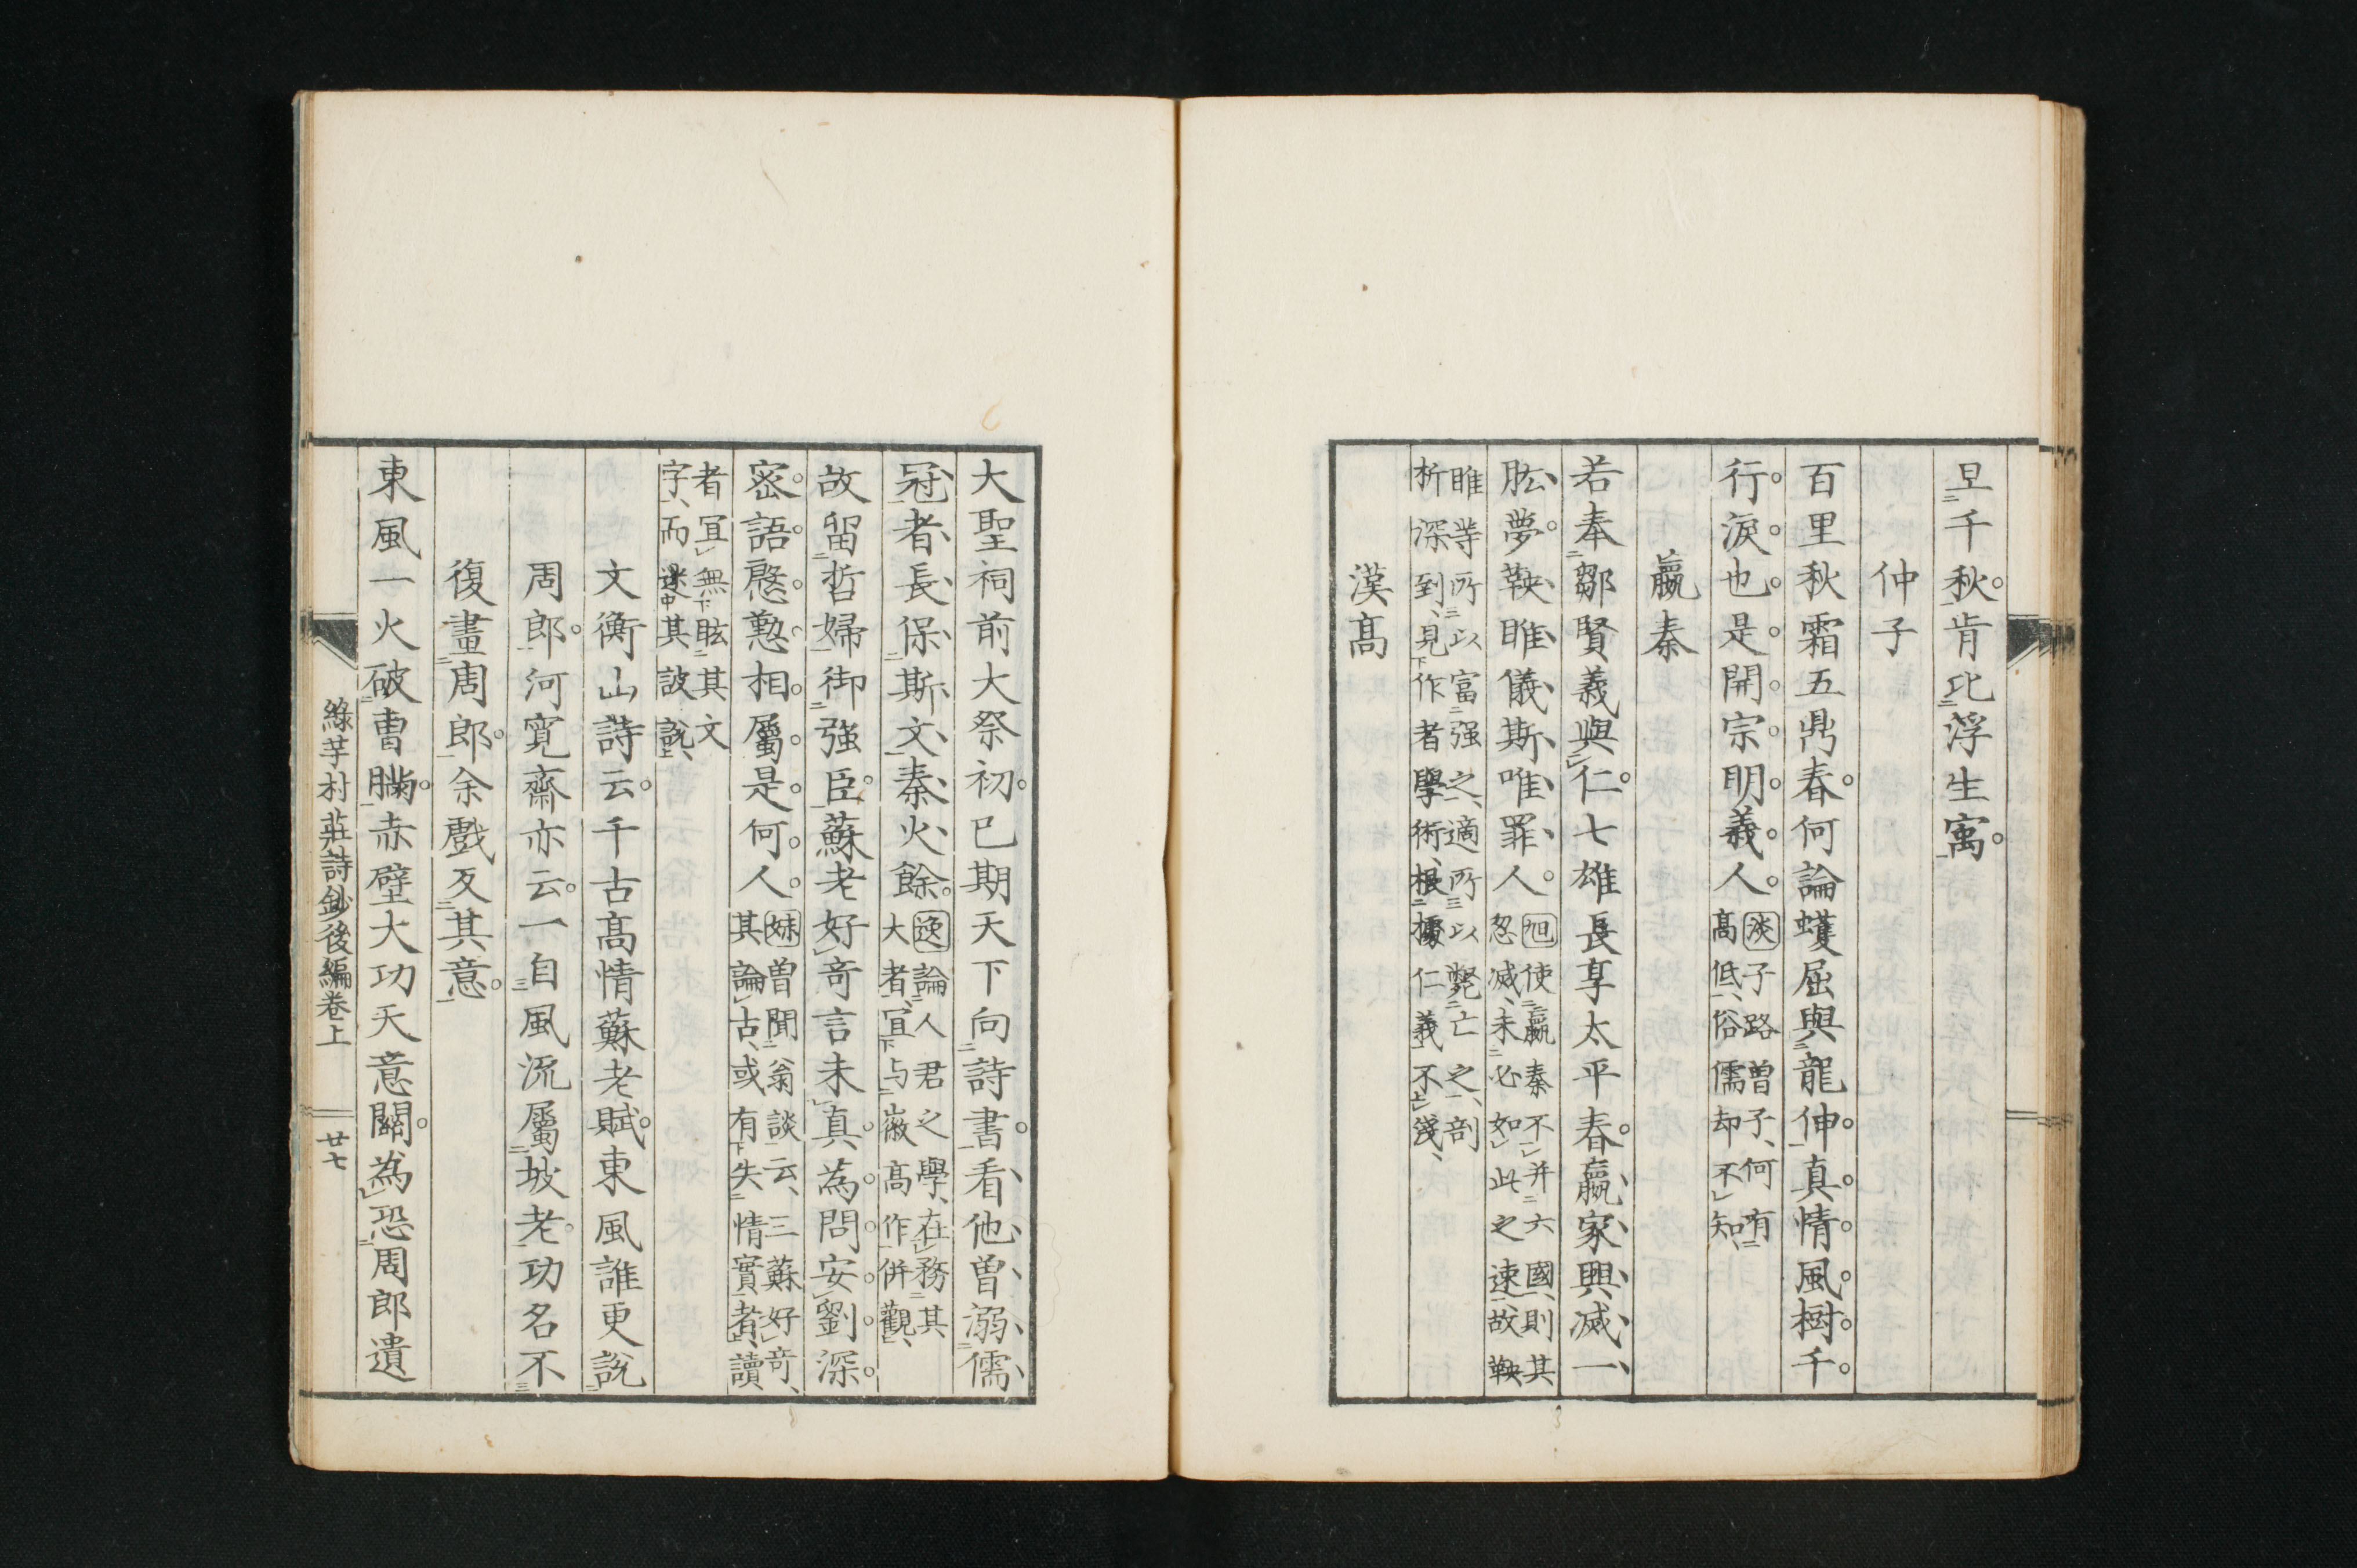 旦千秋肯比浮生寓
仲子
百里秋霜五鼎春何論蠖屈與龍伸真情風樹千
行淚也是開宗明義人
淡子路曽子何有
高低俗儒却不知
嬴秦
若奉鄒賢義與仁七雄長享太平春嬴家興滅一
肱夢鞅睢儀斯唯罪人
使嬴秦不并六國則其
忽滅未必如此之速故鞅
睢等所以富强之適所以斃亡之剖
析深到見作者學術根據仁義不淺
漢高
大聖祠前大祭初已期天下向詩書看他曽溺儒
冠者長保斯文秦火餘
逸論人君之學在務其
大者宜与嶶高作併觀
故留哲婦御强臣蘇老好奇言未真為問安劉深
密語慇懃相屬是何人
妹曽聞翁談云三蘇好奇
其論古或有失情實者讀
者冝無眩其文
字而迷其詖說
文衡山詩云千古高情蘇老賦東風誰更說
周郎河寬齋亦云一自風流屬坡老功名不
復畫周郎余戲反其意
東風一火破曹瞞赤壁大功天意關為恐周郎遺
綠芋村莊詩鈔後編卷上
廿七